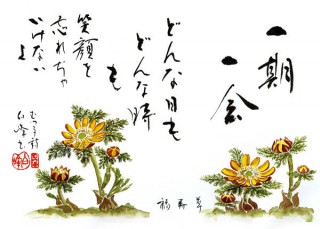 一期
一会
どんな日も
どんな時
も
笑顔を
忘れちゃ
いけない
よ
福寿草